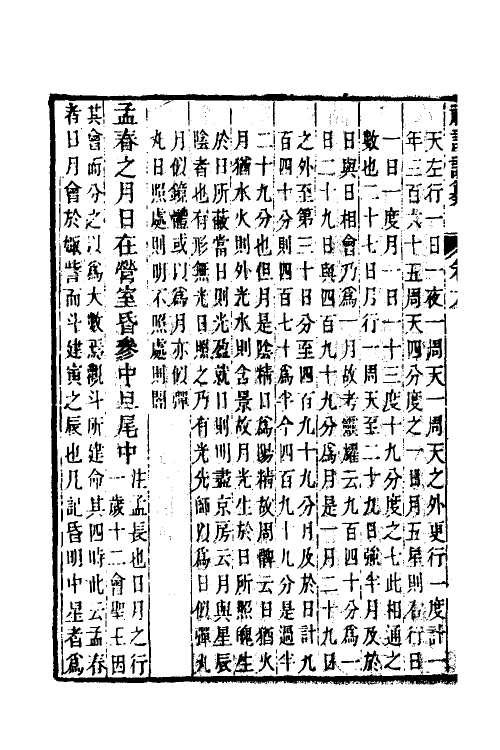 天左行一日一夜一周天一周天之外更行一度計一
年三百六十五周天四分度之一日月五星則右行日
一日一度月一日一十三度十九分度之七此相通之
數也二十七日月行一周天至二十九日強半月及於
日與日相會乃爲一月故考靈耀云九百四十分爲一
日二十九日與四百九十九分爲月是一月二十九日
之外至第三十日分至四百九十九分月及於日計九
百四十分則四百七十爲半今四百九十九分是過半
二十九分也但月是陰精日爲陽精故周髀云日猶火
月猶水火則外光水則含景故月光生於日所照魄生
於日所蔽當日則光盈就日則明盡京房云月與星辰
陰者也有形無光日照之乃有光先師以爲日似彈丸
月似鏡體或以爲月亦似彈
丸日照處則明不照處則闇
孟春之月日在營室昏參中旦尾中
注孟長也日月之行
一歲十二會聖王因
其會而分之以爲大數焉觀斗所建命其四時此云孟春
者日月會於娵訾而斗建寅之辰也凡記昏明中星者爲